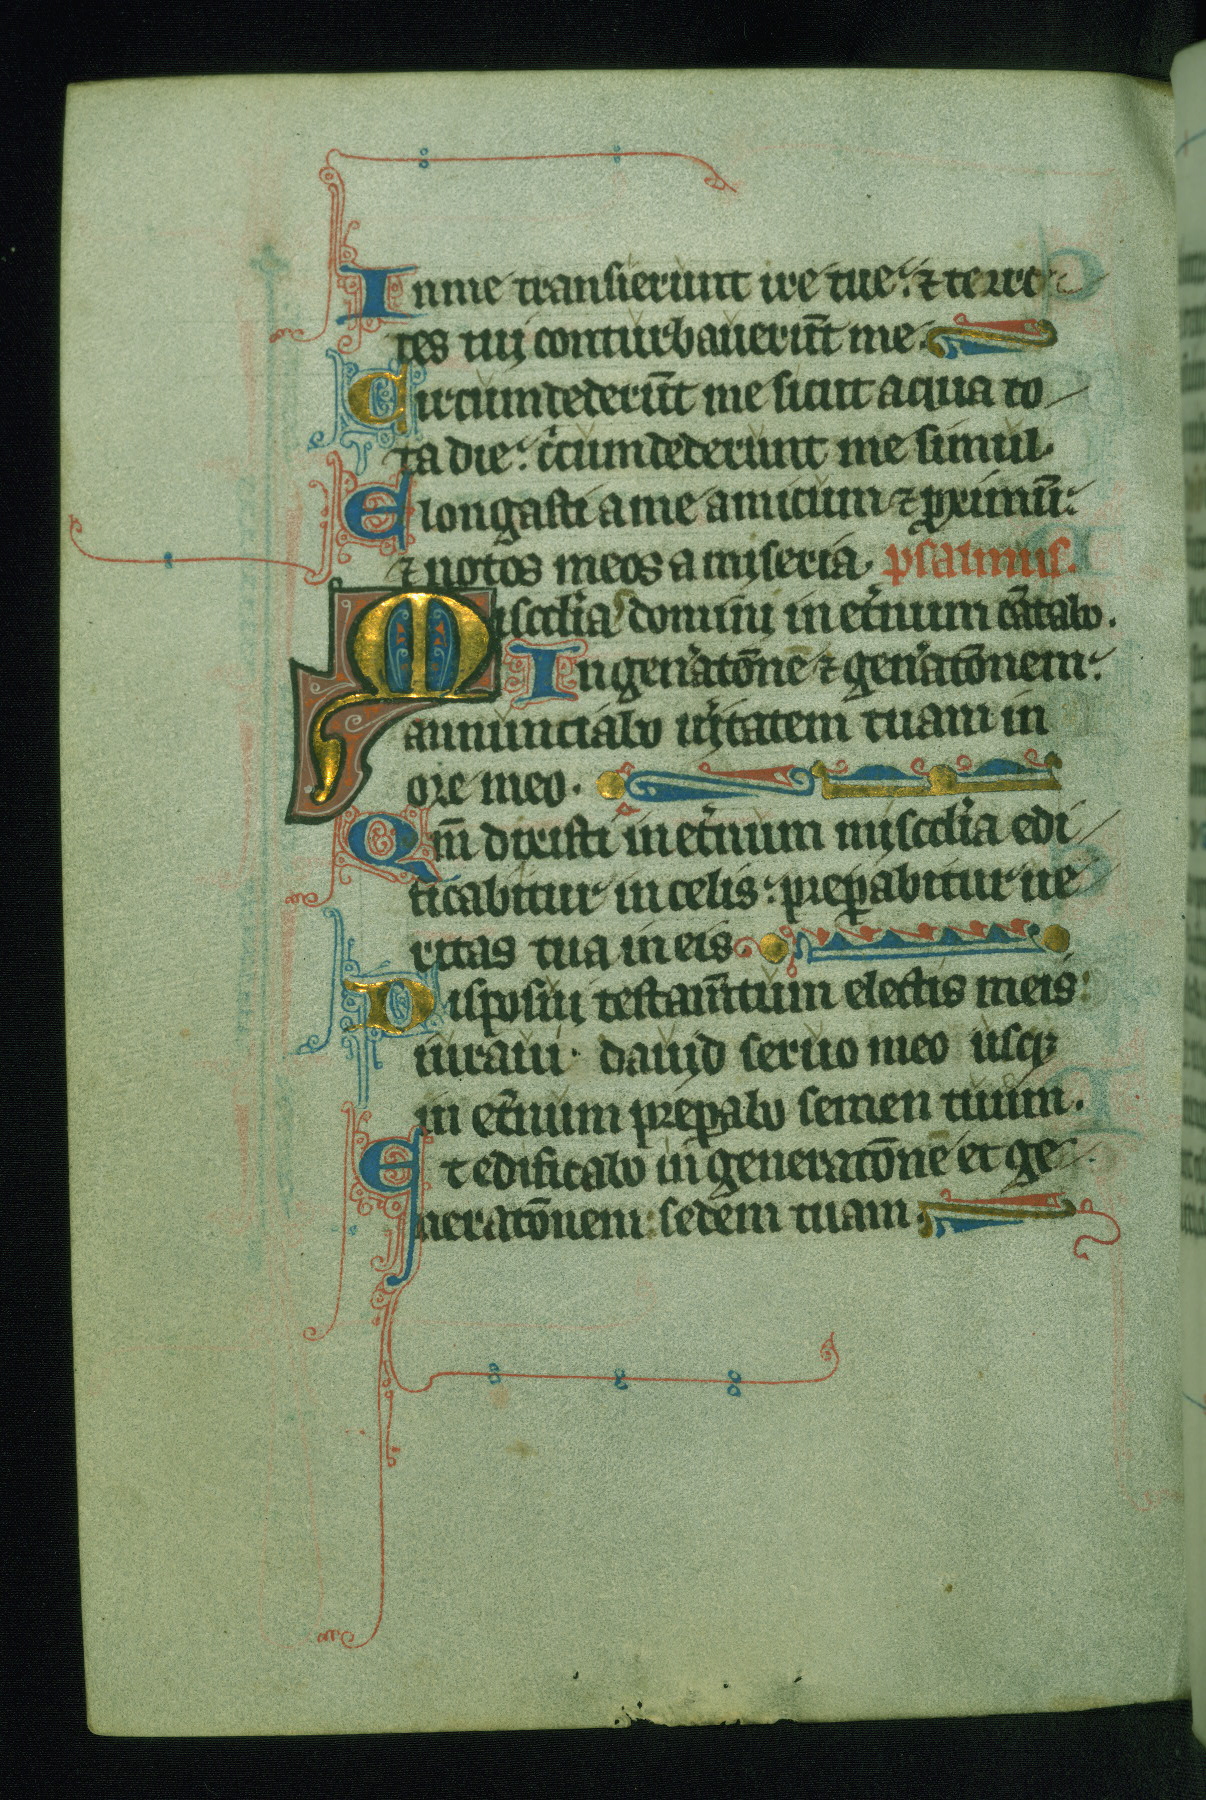 In me transierunt ire tue: ⁊ terro
res tui conturbauerūt me.
Circumdederūt me sicut aqua to
ta die: c̍cumdederunt me simul.
Elongasti a me amicum ⁊ ꝓximū:
⁊ notos meos a miseria. psalmus.
Misc̄dias domini in et̄num cātabo.
In gen̄atōne ⁊ gen̄atōnem:
annunciabo uītatem tuam in
ore meo.
Qm̄ dixisti in et̄num misc̄dia edi
ficabitur in celis: preꝑabitur ue
ritas tua in eis.
Disposui testam̄tum electis meis:
iuraui dauid seruo meo usqꝫ
in et̄num preꝑabo semen tuum.
Et edificabo in generatōne et ge
neratōnem: sedem tuam.